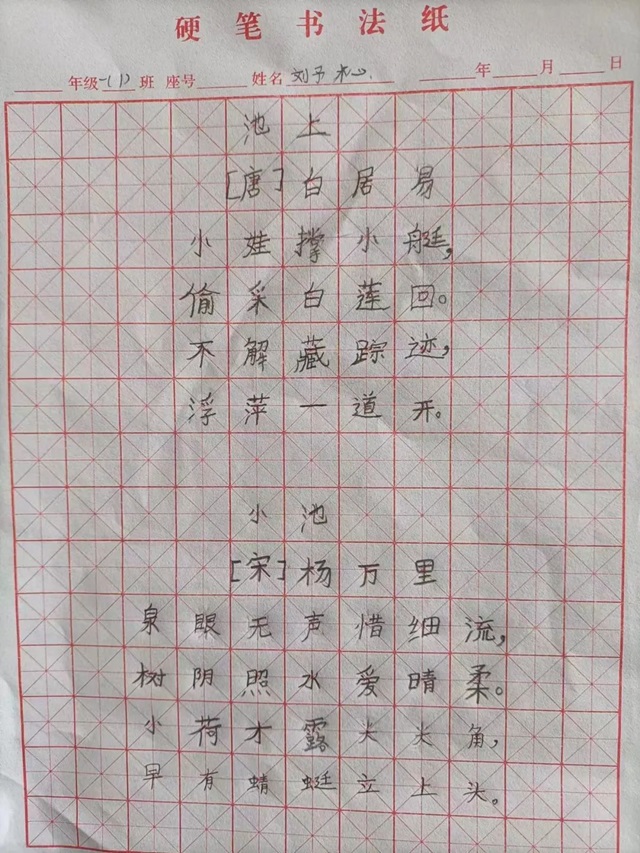 硬笔书法纸
年级一(1)班 座号 姓名 刘予杺 年 月 日
池上
[唐]白居易
小娃撑小艇，
偷采白莲回。
不解藏踪迹，
浮萍一道开。
小池
[宋]杨万里
泉眼无声惜细流，
树阴照水爱晴柔。
小荷才露尖尖角，
早有蜻蜓立上头。